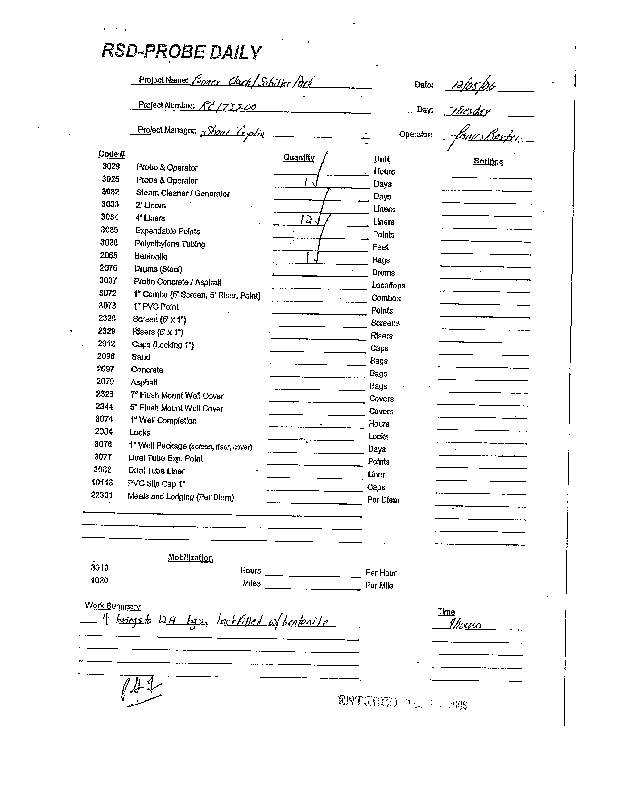 RSD-PROBE DAILY
Project Name: Former Clark/Schiller Park Date: 12/05/06
Project Number: Day: Tuesday
Project Manager: Shawn Operator:
Code # Quantity Unit Borings
3029 Probe & Operator Hours
3025 Probe & Operator 1 Days
3032 Steam Cleaner / Generator Days
3033 2' Liners Liners
3034 4' Liners 12 Liners
3035 Expendable Points Points
3036 Polyethylene Tubing Feet
2065 Bentonite 1 Bags
2076 Drums (Steel) Drums
3037 Probe Concrete / Asphalt Locations
3072 1" Combo (5' Screen, 5' Riser, Point) Combos
3073 1" PVC Point Points
2328 Screen (5' x 1") Screens
2329 Risers (5' x 1") Risers
2912 Caps (Locking 1") Caps
2096 Sand Bags
2097 Concrete Bags
2070 Asphalt Bags
2323 7" Flush Mount Well Cover Covers
2344 5" Flush Mount Well Cover Covers
3074 1" Well Completion Hours
2334 Locks Locks
3076 1" Well Package (screen, riser, cover) Days
3077 Dual Tube Exp. Point Points
3032 Dual Tube Liner Liner
10113 PVC Slip Cap 1" Caps
22301 Meals and Lodging (Per Diem) Per Diem
Mobilization
3313 Hours Per Hour
4020 Miles Per Mile
Work Summary Time
4 borings to 12 ft bgs, backfilled w/ bentonite hours
ENTERED